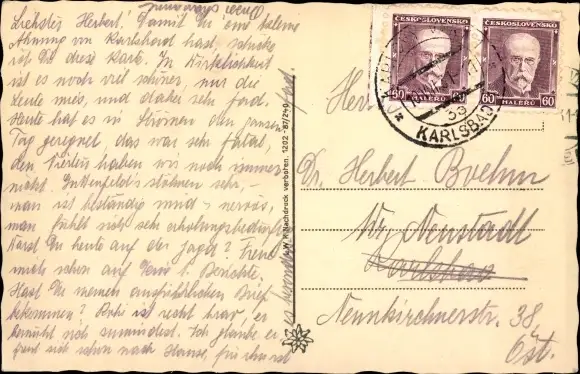 Liebster Herbert! Damit Du eine kleine
Ahnung von Karlsbad hast, schicke
ich Dir diese Karte. In Wirklichkeit
ist es noch viel schöner, nur die
Leute mies, und daher sehr fad.
Heute hat es in Strömen den ganzen
Tag geregnet, das war sehr fatal,
den haben wir noch immer
nicht. stöhnen sehr, –
man ist beständig müd u. nervös,
man fühlt sich sehr erholungsbedürftig
Warst Du heute auf der Jagd? Freue
mich schon auf Deine Berichte.
Hast Du meinen ausführlichen Brief
bekommen? ist recht brav, er
bemüht sich zumindest. Ich glaube er
freut sich schon nach Hause, für ihn ist
es besonders fad.
Nachdruck verboten. 1202 - 87/240
ČESKOSLOVENSKO
60 HALÉŘŮ 60
ČESKOSLOVENSKO
60 HALÉŘŮ 60
KARLSBAD
Her
Dr. Herbert Boehm
Wr. Neustadt
Karlsbad
Neunkirchnerstr. 38,
Öst.